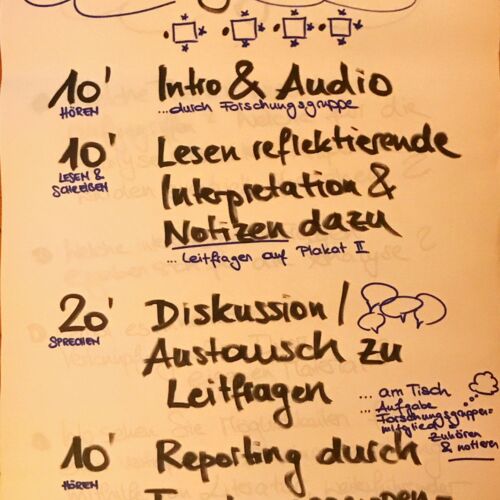 10' Intro & Audio
HÖREN
...durch Forschungsgruppe
10' Lesen reflektierende
LESEN &
SCHREIBEN
Interpretation &
Notizen dazu
... Leitfragen auf Plakat II
20' Diskussion /
SPRECHEN
Austausch zu
Leitfragen
... am Tisch
... Aufgabe
Forschungsgruppen
mitglied
zuhören
& notieren
10' Reporting durch
HÖREN